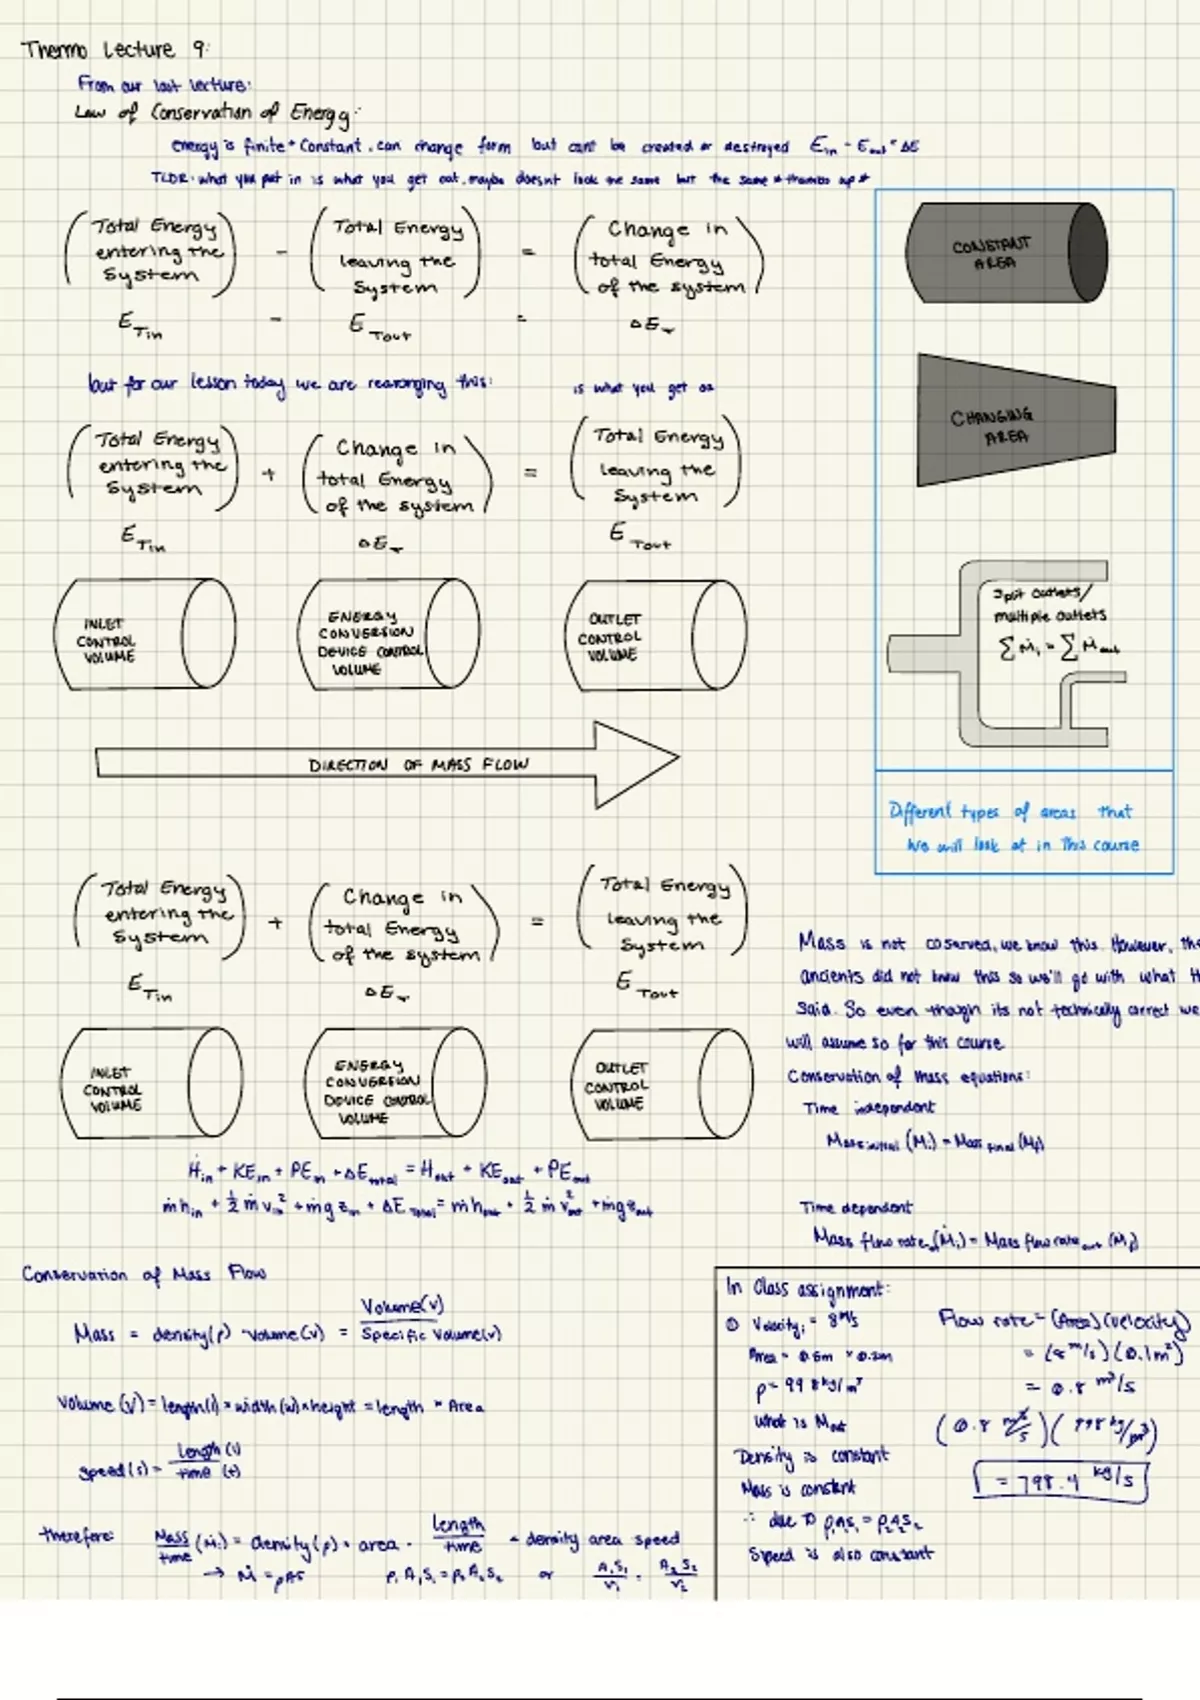 Thermo Lecture 9:
From our last lecture:
Law of Conservation of Energy:
energy is finite + Constant, can change form but cant be created or destroyed E in - E out = ΔE
TLDR: what you put in is what you get out, maybe doesnt look the same but the same * thumbs up *
(Total Energy entering the System) - (Total Energy leaving the System) = (Change in total Energy of the system)
E Tin - E Tout = ΔE T
but for our lesson today we are rearranging this: is what you get as
(Total Energy entering the System) + (Change in total Energy of the system) = (Total Energy leaving the System)
E Tin ΔE T E Tout
INLET CONTROL VOLUME
ENERGY CONVERSION DEVICE CONTROL VOLUME
OUTLET CONTROL VOLUME
DIRECTION OF MASS FLOW
CONSTANT AREA
CHANGING AREA
Split outlets/
multiple outlets
Σ ṁi = Σ ṁout
Different types of areas that
we will look at in this course
(Total Energy entering the System) + (Change in total Energy of the system) = (Total Energy leaving the System)
E Tin ΔE T E Tout
INLET CONTROL VOLUME
ENERGY CONVERSION DEVICE CONTROL VOLUME
OUTLET CONTROL VOLUME
Ḣin + KEin + PEin + ΔEtotal = Hout + KEout + PEout
ṁhin + 1/2 ṁvin² + ṁgzin + ΔE Total = ṁhout + 1/2 ṁvout² + ṁgzout
Mass is not coserved, we know this. However, the
ancients did not know this so we'll go with what th
said. So even though its not technically correct we
will assume so for this course
Conservation of mass equations:
Time independent
Mass initial (Mi) = Mass final (Mf)
Time dependent
Mass flow rate (Ṁi) = Mass flow rate out (Ṁf)
Conservation of Mass Flow
Mass = density(ρ) · volume(v) = Volume(v) / Specific volume(v)
Volume (V) = length(l) × width (w) × height = length × Area
speed(s) = length (l) / time (t)
therefore: Mass/time (ṁ) = density(ρ) · area · length/time = density area speed
→ Ṁ = ρAS ρ₁A₁S₁ = ρ₂A₂S₂ or A₁S₁/v₁ = A₂S₂/v₂
In Class assignment:
① Velocity₁ = 8 m/s
Area = 0.5m × 0.2m
ρ = 998 kg/m³
What is Mout
Density is constant
Mass is constant
∴ due to ρ₁A₁S₁ = ρ₂A₂S₂
Speed is also constant
Flow rate = (Area)(velocity)
= (8 m/s)(0.1m²)
= 0.8 m³/s
(0.8 m³/s)(998 kg/m³)
= 798.4 kg/s